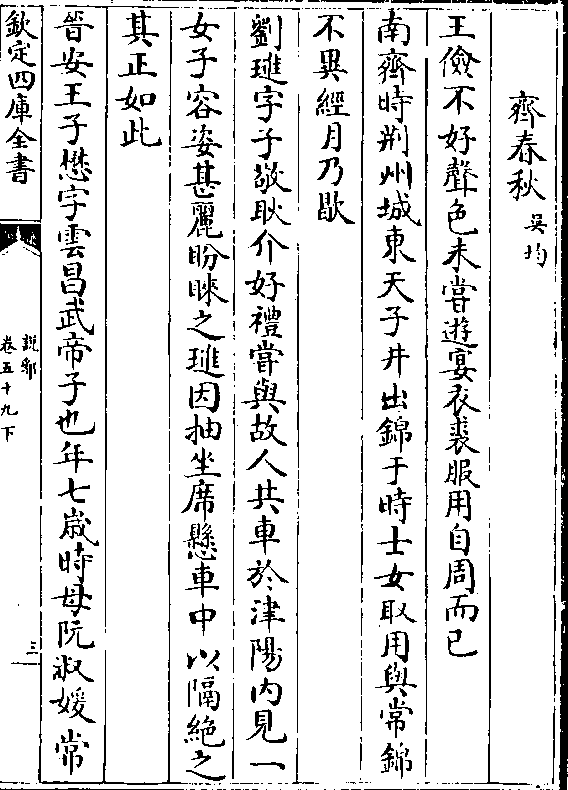 齊春秋 吳均
王儉不好聲色未嘗遊宴衣裘服用自周而已
南齊時荆州城東天子井出錦于時士女取用與常錦
不異經月乃歇
劉璡字子敬耿介好禮嘗與故人共車於津陽内見一
女子容姿甚麗盼睞之璡因抽坐席懸車中以隔絶之
其正如此
晉安王子懋字雲昌武帝子也年七歲時母阮淑媛常
欽定四庫全書
說郛
卷五十九下
三